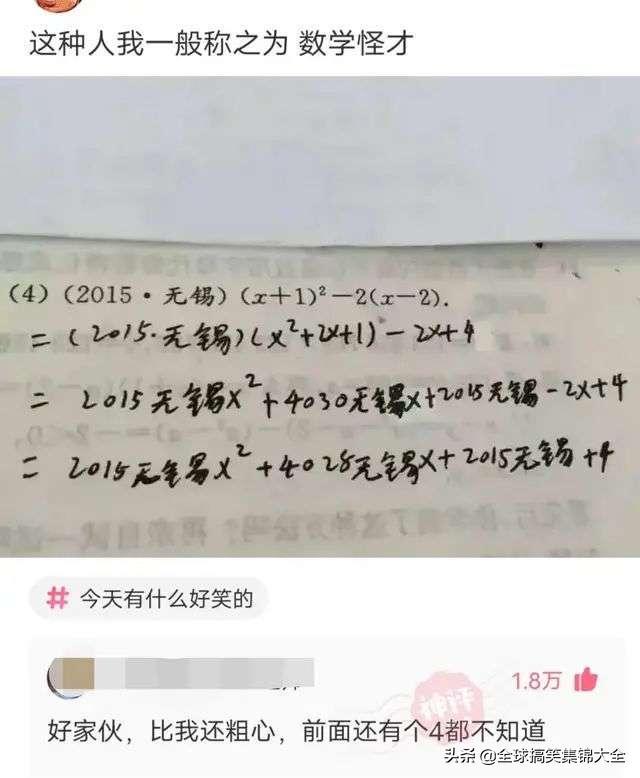 这种人我一般称之为 数学怪才
(4) (2015·无锡) (x+1)²−2(x−2).
= (2015·无锡)(x²+2x+1) - 2x+4
= 2015无锡x²+4030无锡x+2015无锡-2x+4
= 2015无锡x²+4028无锡x+2015无锡+4
# 今天有什么好笑的
1.8万
好家伙，比我还粗心，前面还有个4都不知道
头条 @全球搞笑集锦大全